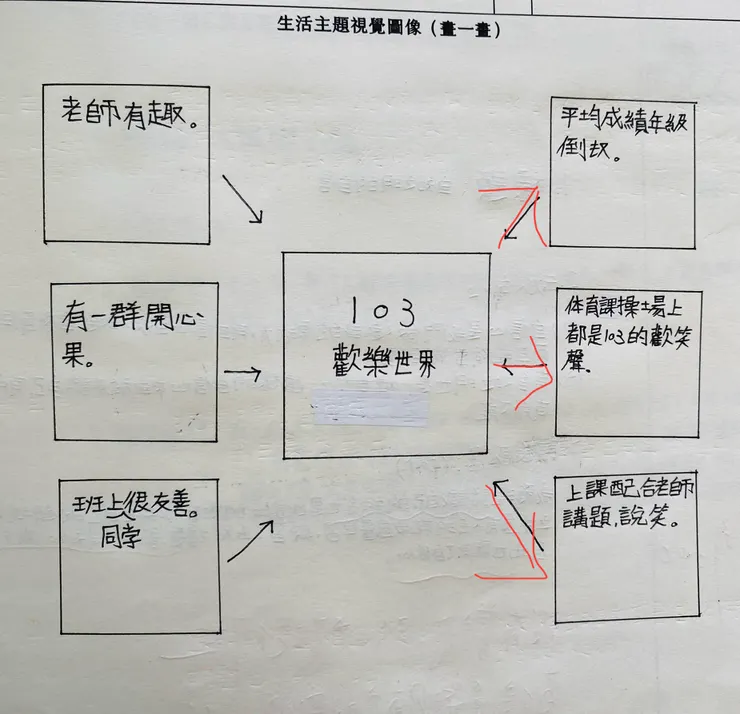 生活主題視覺圖像（畫一畫）
老師有趣。
有一群開心
果。
班上很友善。
同學
103
歡樂世界
平均成績年級
倒扠。
体育課操場上
都是103的歡笑
聲。
上課配合老師
講題,說笑。